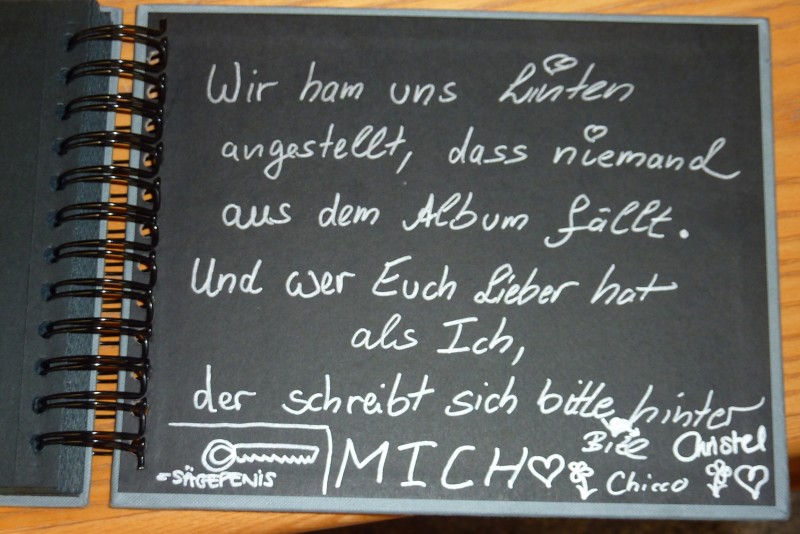 Wir ham uns hinten
angestellt, dass niemand
aus dem Album fällt.
Und wer Euch Lieber hat
als Ich,
der schreibt sich bitte hinter
MICH
Christel
Chicco
=SÄGEPENIS